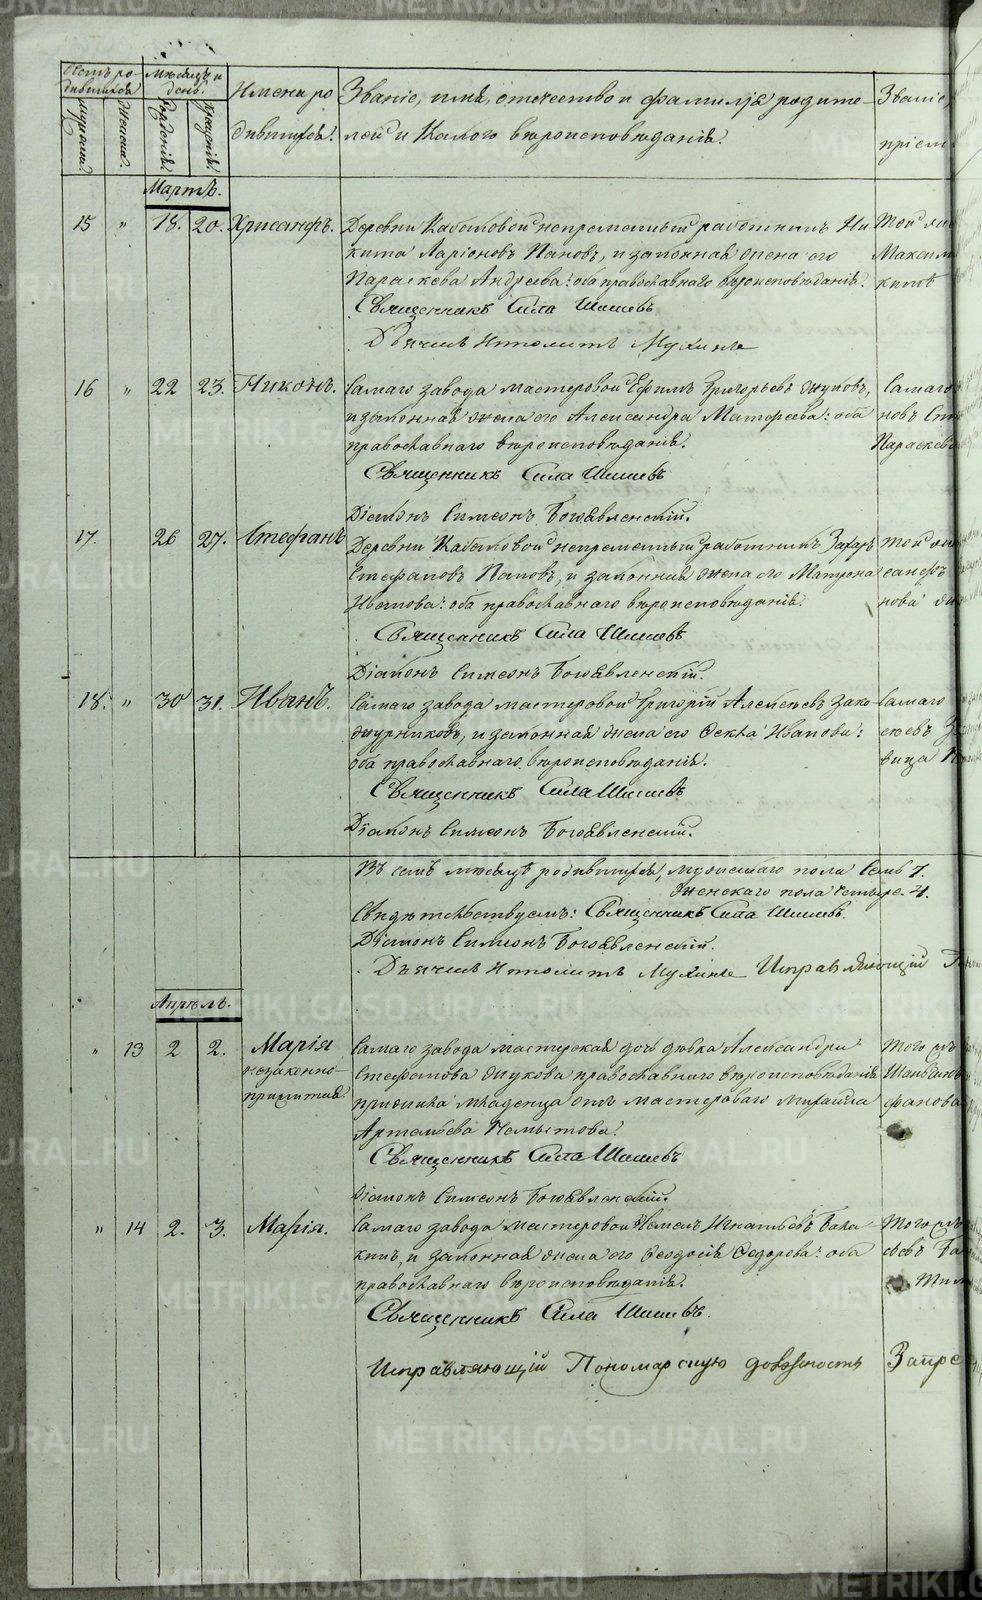 Счетъ ро-
дившихся
Мѣсяцъ и
день.
Имена ро
дившихся.
Званіе, имя, отчество и фамилія родите-
лей и какого вѣроисповѣданія.
Званіе,
пріем
Мужеска.
Женска.
Рожденія.
Крещенія.
Мартъ.
15 " 18. 20. Хрисанфъ. Деревни Кабаковой непремѣнный работникъ Ни
кита Ларіоновъ Поповъ, и законная жена его
Параскева Андреева: оба православнаго вѣроисповѣданія.
Той
Максим
Священникъ Сила Шишевъ
Дьячекъ Ипполитъ Мухинъ
16 " 22 23. Никонъ. Самаго завода мастеровой Ефимъ Григорьевъ Жуковъ,
и законная жена его Александра Матфеева: оба
православнаго вѣроисповѣданія.
Самаго
новъ
Параскева
Священникъ Сила Шишевъ
Діаконъ Симеонъ Богоявленскій.
17. 26 27. Стефанъ Деревни Кабаковой непремѣнный работникъ Захаръ
Стефановъ Поповъ, и законная жена его Матрона
Иванова: оба православнаго вѣроисповѣданія.
той
санфъ
нова
Священникъ Сила Шишевъ
Діаконъ Симеонъ Богоявленскій.
18. " 30 31. Иванъ. Самаго завода мастеровой Григорій Алексѣевъ Зако
журниковъ, и законная жена его Фекла Иванова:
оба православнаго вѣроисповѣданія.
Самаго
сѣевъ
вица
Священникъ Сила Шишевъ
Діаконъ Симеонъ Богоявленскій.
Въ семъ мѣсяцѣ родившихся, мужескаго пола семь 7.
Женскаго пола четыре 4.
Свидѣтельствуемъ: Священникъ Сила Шишевъ.
Діаконъ Симеонъ Богоявленскій.
Дьячекъ Ипполитъ Мухинъ Исправляющій
Апрѣль.
" 13 2 2. Марія
незаконно-
прижитая
Самаго завода мастерская дочь дѣвка Александра
Стефанова Жукова православнаго вѣроисповѣданія
прижила младенца отъ мастероваго Михаила
Артемьева
Того
фанова
Священникъ Сила Шишевъ
Діаконъ Симеонъ Богоявленскій.
" 14 2. 3. Марія. Самаго завода мастеровой Игнатьевъ Бала
кинъ, и законная жена его Феодосія Федорова: оба
православнаго вѣроисповѣданія.
Того
Священникъ Сила Шишевъ.
Исправляющій Пономарскую должность
METRIKI.GASO-URAL.RU